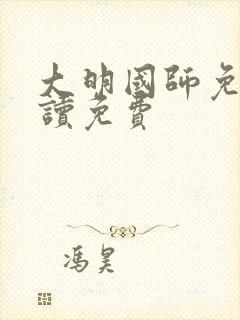 大明國師免
讀免費
馮昊